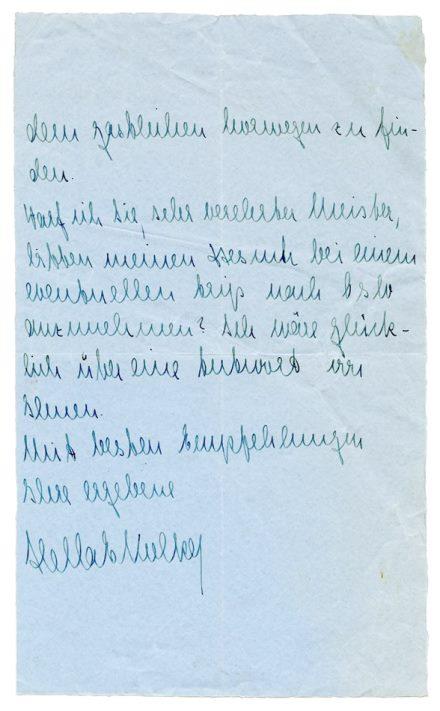 dem gastlichen Norwegen zu fin-
den.
Darf ich Sie, sehr verehrter Meister,
bitten meinen Besuch bei einem
eventuellen Trip nach Oslo
anzunehmen? Ich wäre glück-
lich über eine Antwort von
Ihnen.
Mit besten Empfehlungen
Ihre ergebene